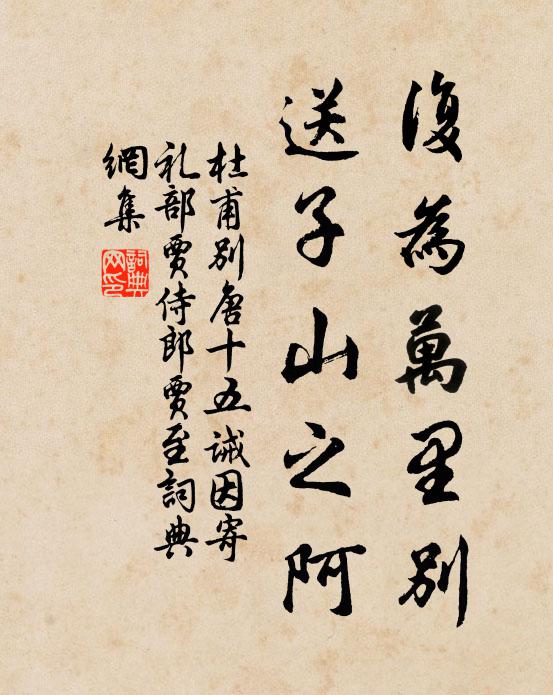 復為萬里別
送子山之阿
杜甫別唐十五誡因寄
礼部賈侍郎賈至詞典
網集
詞典网印